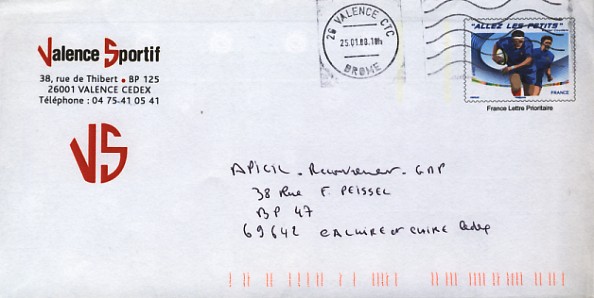 Valence Sportif
38, rue de Thibert • BP 125
26001 VALENCE CEDEX
Téléphone : 04 75-41 05 41
VS
26 VALENCE CTC
25.01.08
DROME
"ALLEZ LES PETITS"
FRANCE
France Lettre Prioritaire
APICIL. Recouvrement. GAP
38 Rue F. PEISSEL
BP 47
69642 CALUIRE et CUIRE Cedex